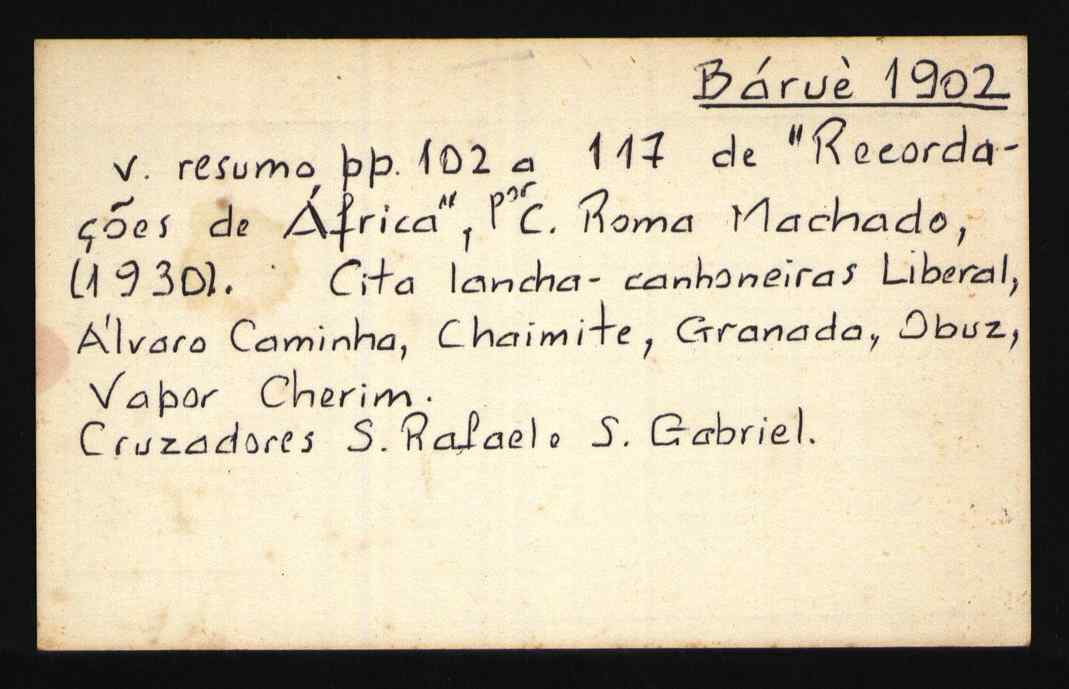 Báruè 1902
v. resumo pp. 102 a 117 de "Recorda-
ções de África", por C. Roma Machado,
(1930). Cita lancha-canhoneiras Liberal,
Álvaro Caminha, Chaimite, Granada, Obuz,
Vapor Cherim.
Cruzadores S. Rafael e S. Gabriel.